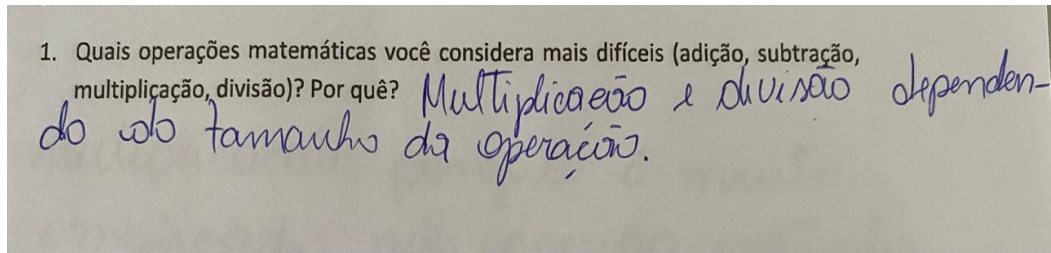 1. Quais operações matemáticas você considera mais difíceis (adição, subtração,
multiplicação, divisão)? Por quê? Multiplicação e divisão dependen-
do do tamanho da operação.